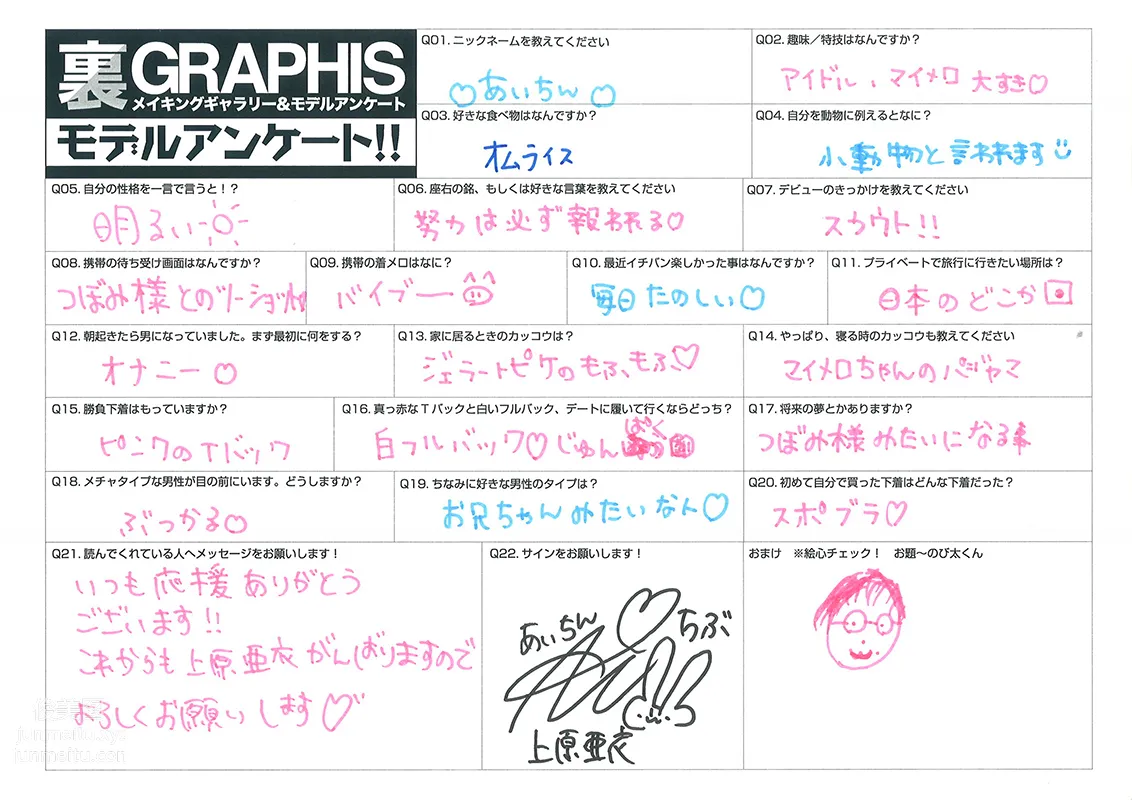 裏GRAPHIS
メイキングギャラリー&モデルアンケート
モデルアンケート!!
Q01. ニックネームを教えてください
♡あいちん♡
Q02. 趣味／特技はなんですか？
アイドル、マイメロ 大すき♡
Q03. 好きな食べ物はなんですか？
オムライス
Q04. 自分を動物に例えるとなに？
小動物と言われます
Q05. 自分の性格を一言で言うと！？
明るい
Q06. 座右の銘、もしくは好きな言葉を教えてください
努力は必ず報われる♡
Q07. デビューのきっかけを教えてください
スカウト!!
Q08. 携帯の待ち受け画面はなんですか？
つぼみ様とのツーショット
Q09. 携帯の着メロはなに？
バイブー
Q10. 最近イチバン楽しかった事はなんですか？
毎日たのしい♡
Q11. プライベートで旅行に行きたい場所は？
日本のどこか
Q12. 朝起きたら男になっていました。まず最初に何をする？
オナニー♡
Q13. 家に居るときのカッコウは？
ジェラートピケのもふもふ♡
Q14. やっぱり、寝る時のカッコウも教えてください
マイメロちゃんのパジャマ
Q15. 勝負下着はもっていますか？
ピンクのTバック
Q16. 真っ赤なTバックと白いフルバック、デートに履いて行くならどっち？
白フルバック♡じゅんぱく
Q17. 将来の夢とかありますか？
つぼみ様みたいになる
Q18. メチャタイプな男性が目の前にいます。どうしますか？
ぶつかる♡
Q19. ちなみに好きな男性のタイプは？
お兄ちゃんみたいな人♡
Q20. 初めて自分で買った下着はどんな下着だった？
スポブラ♡
Q21. 読んでくれている人へメッセージをお願いします！
いつも応援ありがとう
ございます!!
これからも上原亜衣がんばりますので
よろしくお願いします♡
Q22. サインをお願いします！
あいちん♡ちぶ
上原亜衣
おまけ ※絵心チェック！ お題〜のび太くん
junmeitu.xyz
junmeitu.com